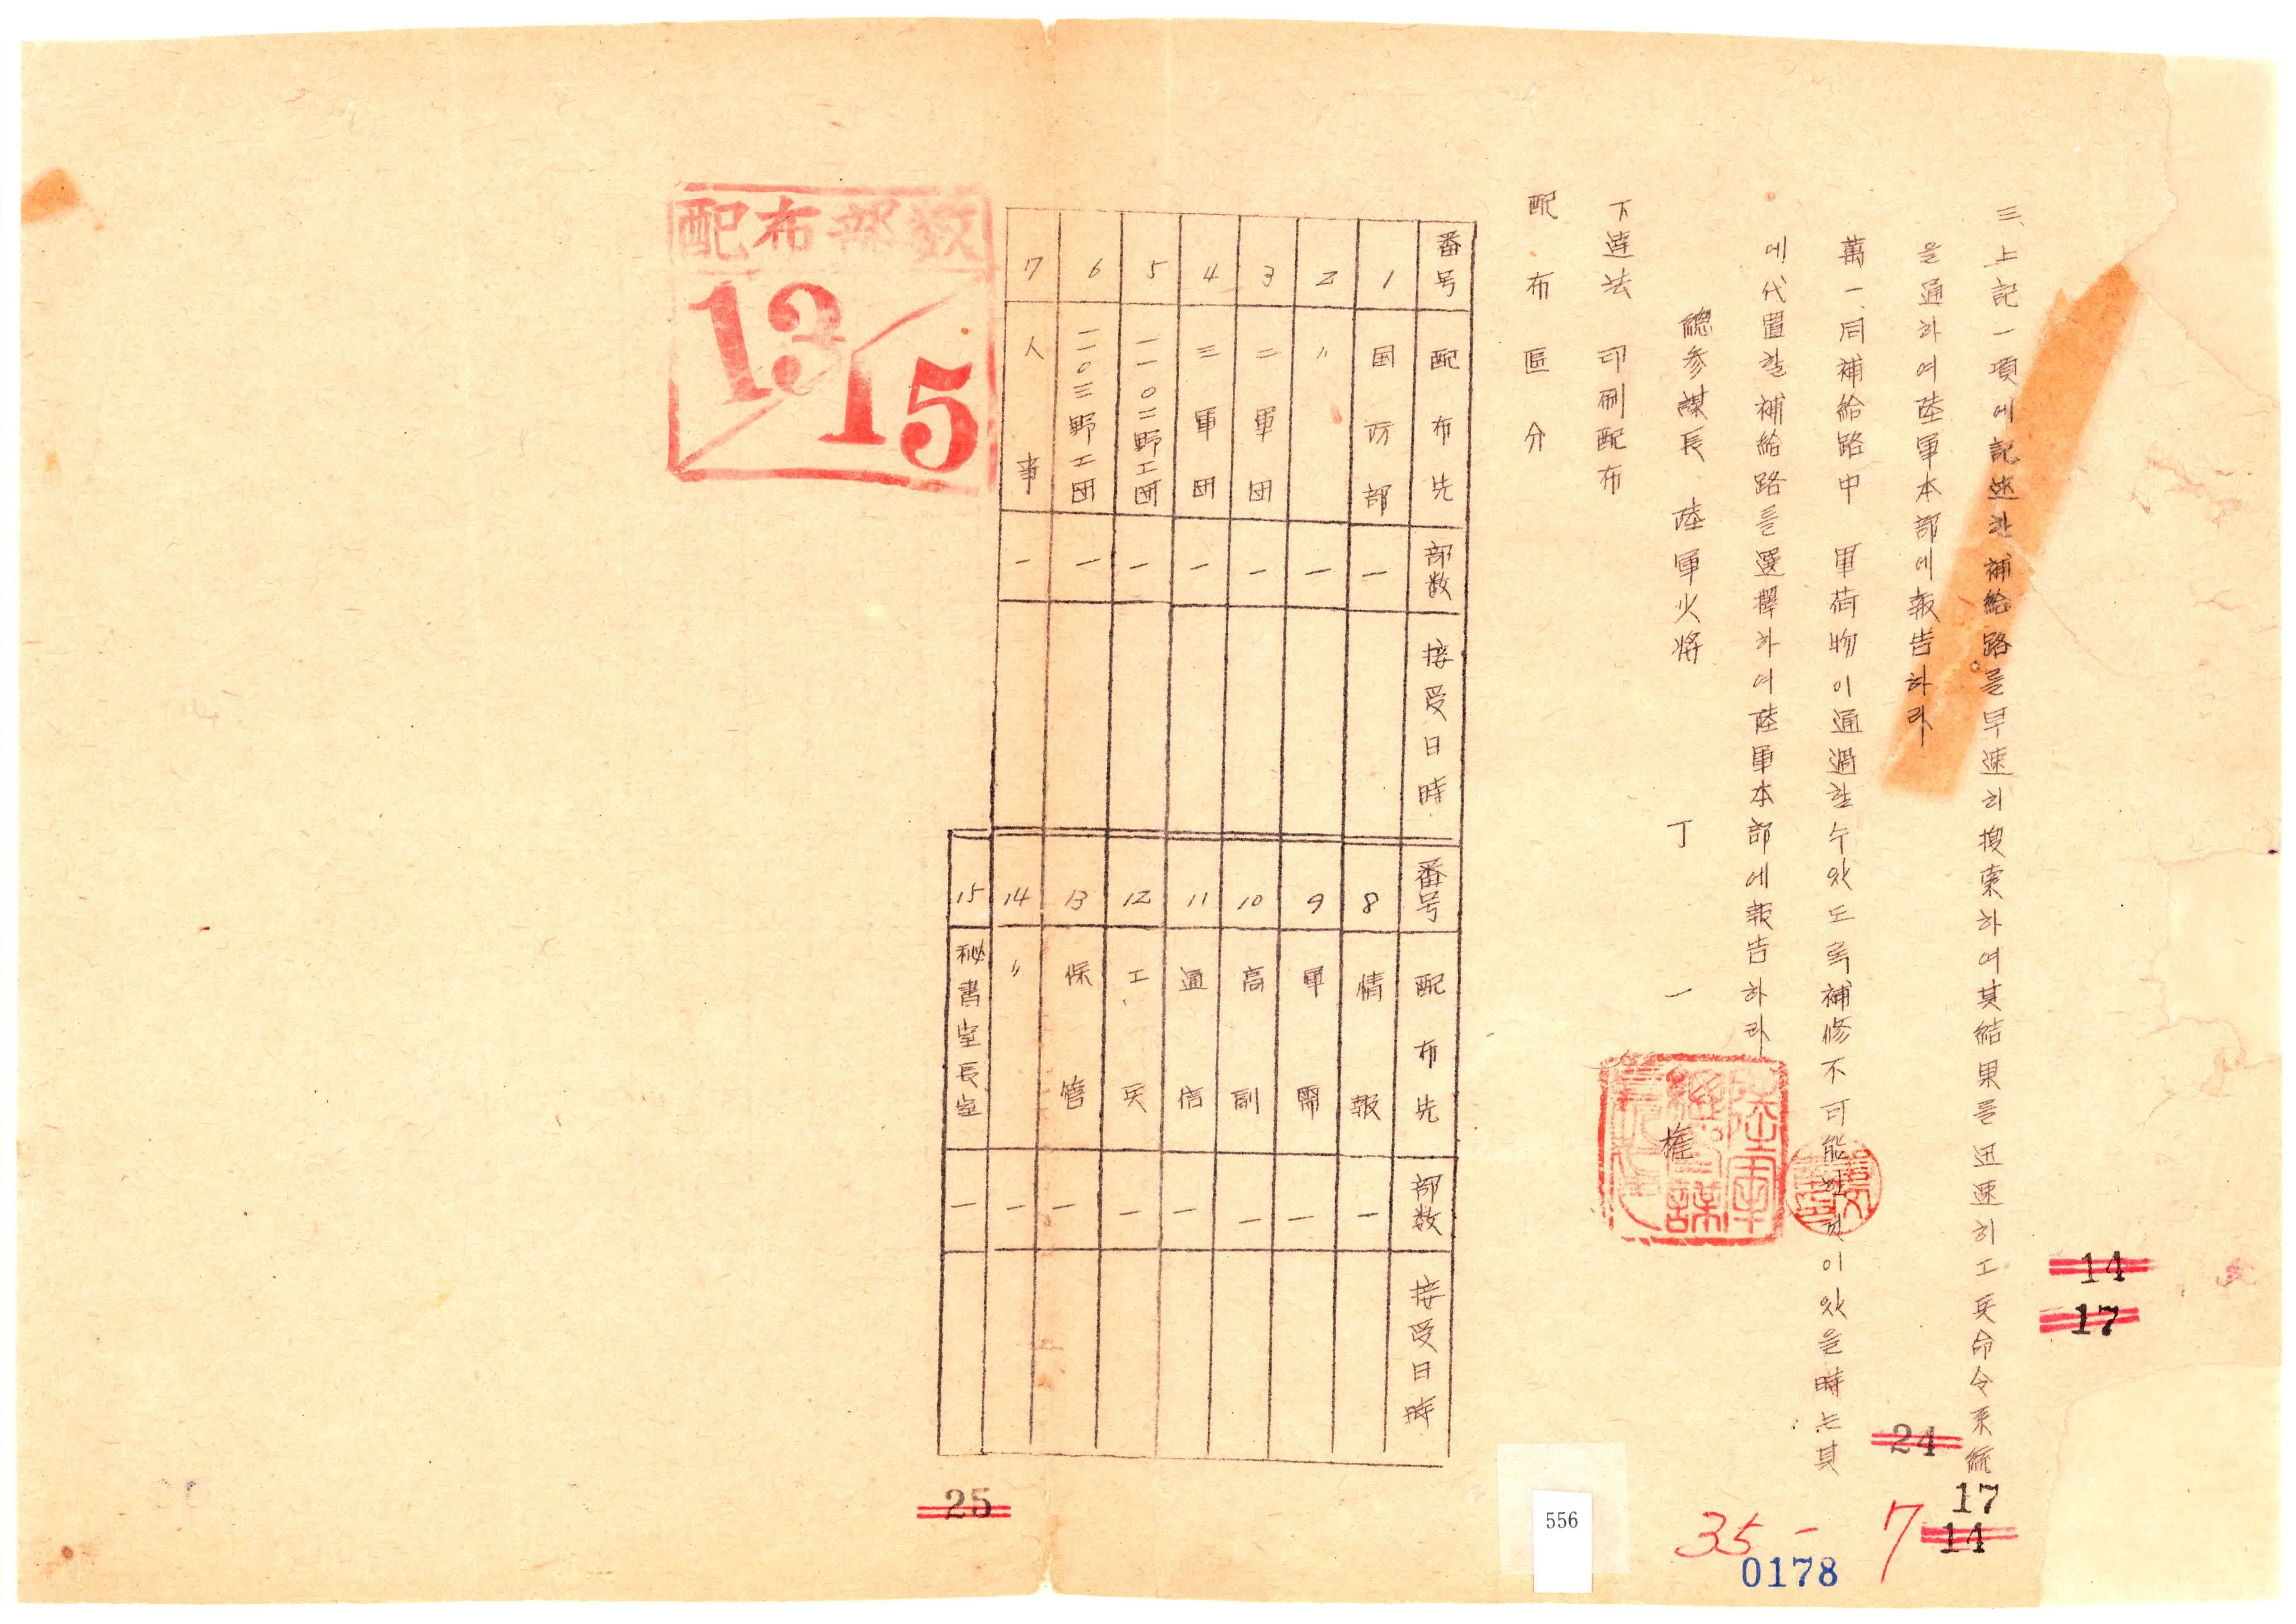 三、上記一項에記述한補給路를早速히搜索하여其結果를迅速히工兵命令系統
을通하여陸軍本部에報告하라
萬一、同補給路中 軍荷物이通過할수있도록補修不可能한것이있을時는其
에代置할補給路를選擇하여陸軍本部에報告하라
總参謀長 陸軍火将 丁 一 權
下達法 印刷配布
配布區分
番号 配布先 部数 接受日時
1 国防部 一
2 〃 一
3 二軍団 一
4 三軍団 一
5 一一〇二野工団 一
6 一一〇三野工団 一
7 人事 一
番号 配布先 部数 接受日時
8 情報 一
9 軍需 一
10 高副 一
11 通信 一
12 工兵 一
13 保管 一
14 〃 一
15 秘書室長室 一
配布部数
13/15
14
17
24
17
14
35-7
0178
556
25